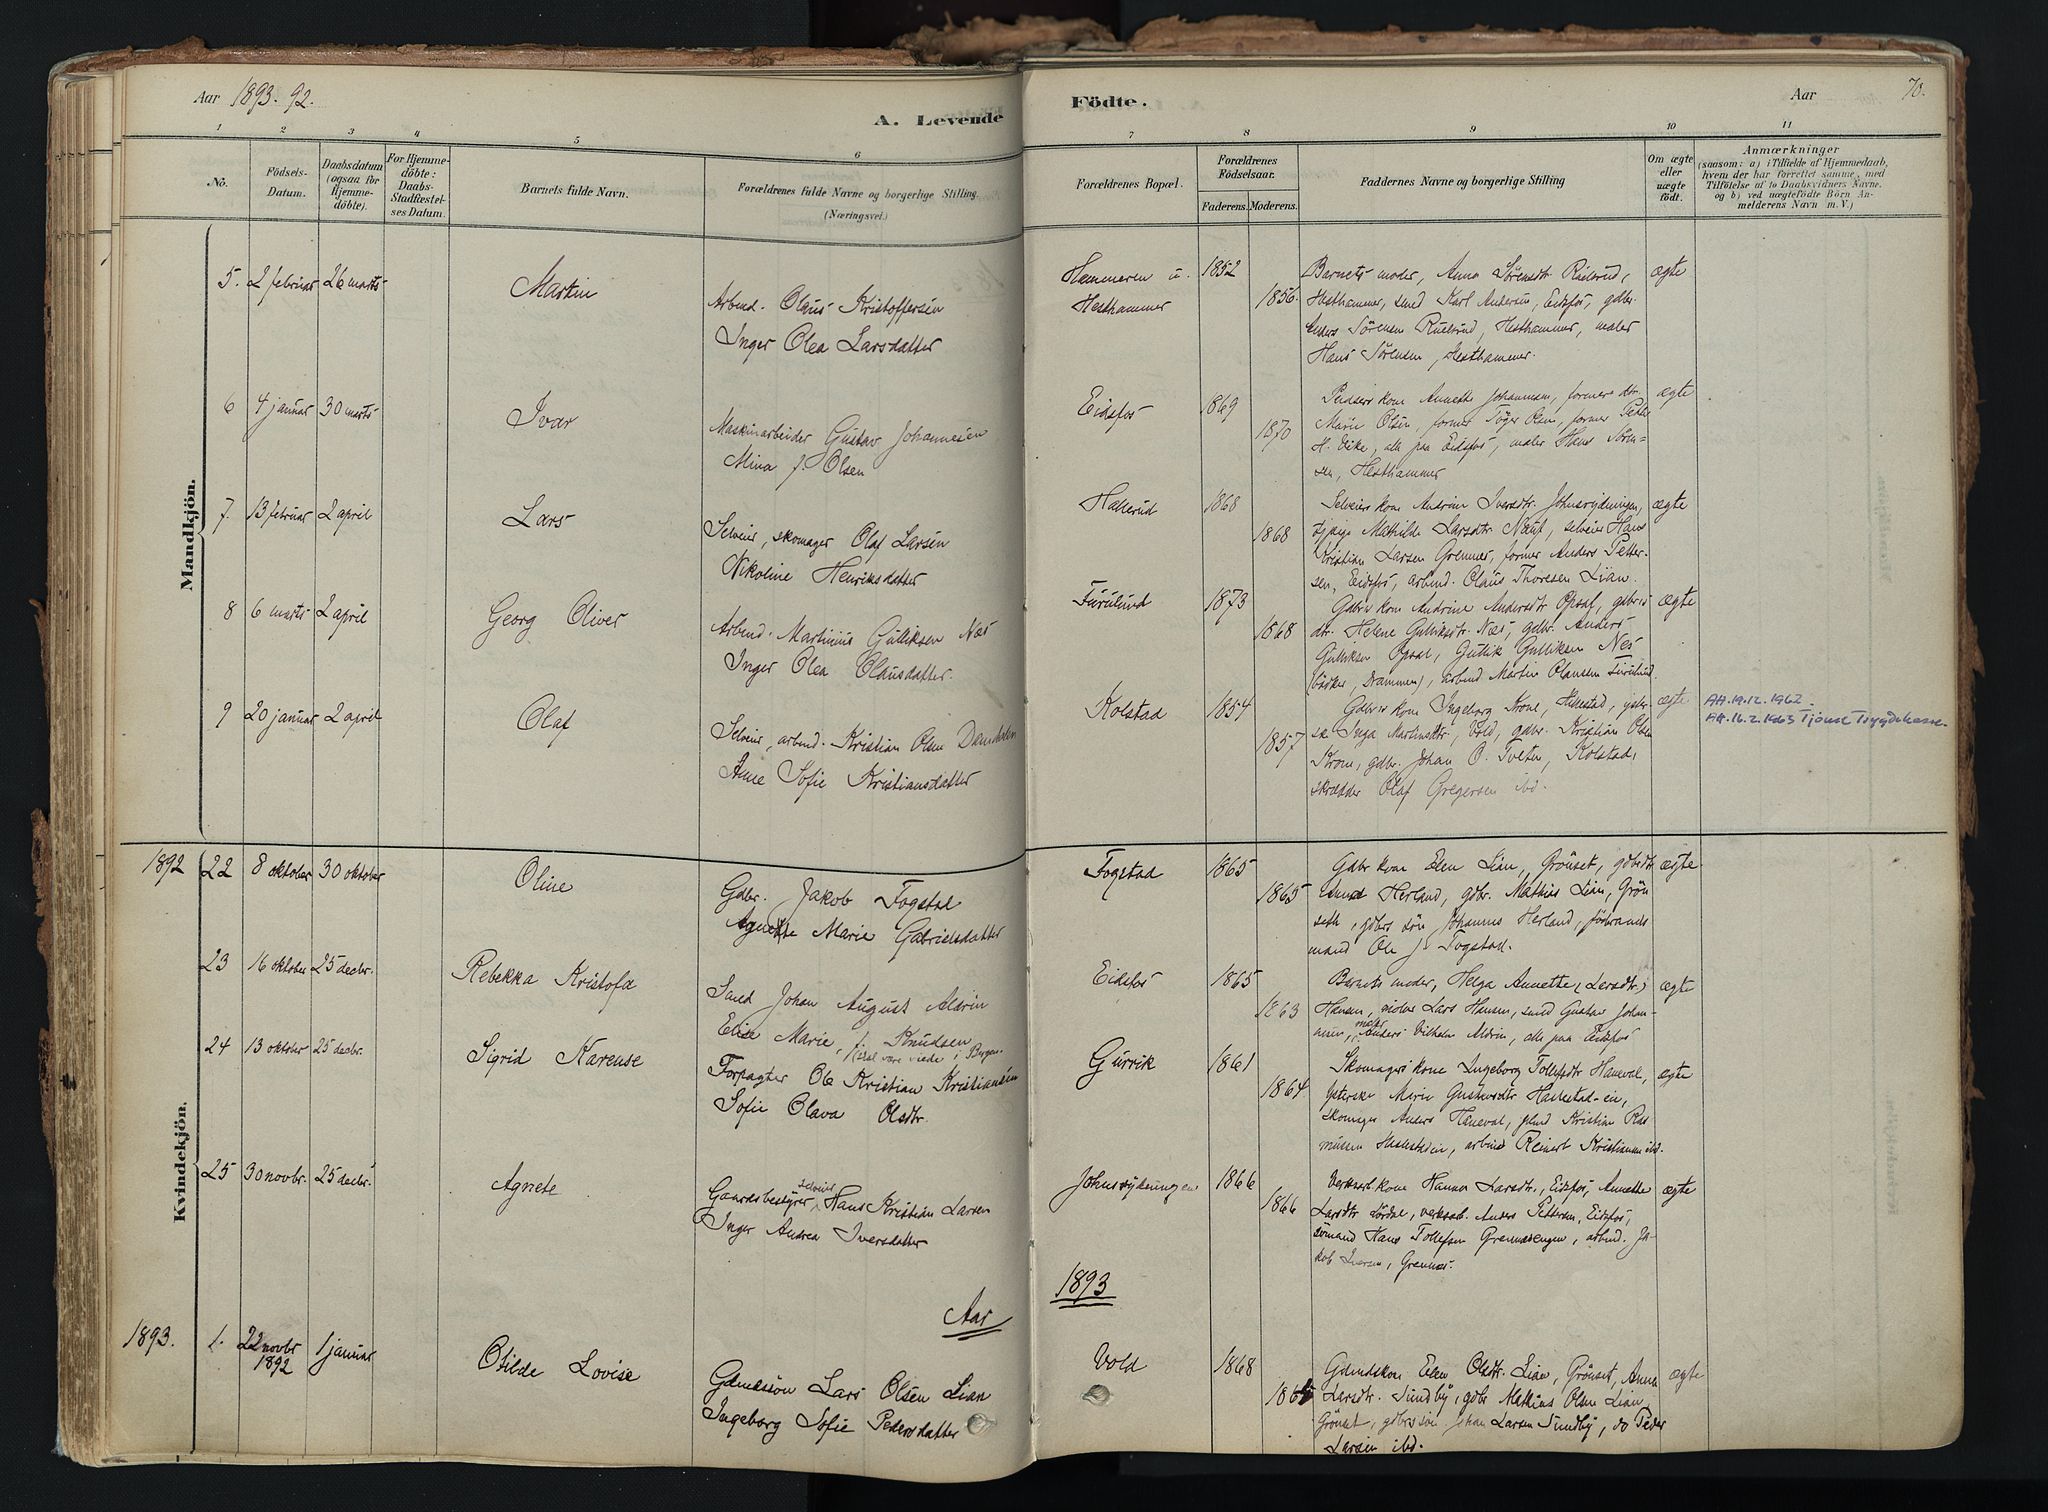 Aar 1893. 92.
A. Levende
Födte.
Aar
70.
1 2 3 4 5 6 7 8 9 10 11
No.
Födsels-
Datum.
Daabsdatum
(ogsaa for
Hjemme-
döbte).
For Hjemme-
döbte:
Daabs-
Stadfæstel-
ses Datum.
Barnets fulde Navn.
Forældrenes fulde Navne og borgerlige Stilling
(Næringsvei.)
Forældrenes Bopæl.
Forældrenes
Födselsaar.
Faderens. Moderens.
Faddernes Navne og borgerlige Stilling
Om ægte
eller
uægte
födt.
Anmærkninger
(saasom: a) i Tilfælde af Hjemmedaab,
hvem der har forrettet samme, med
Tilföielse af to Daabsvidners Navne.
og b) ved uægtefödte Börn An-
melderens Navn m. V.)
Mandkjön.
5. 2 februar 26 marts
Martin
Arbmd. Olaus Kristoffersen
Inger Olea Larsdatter
Hammeren u.
Hesthammer
1852
1856.
Barnets moder, Anna Sörensdtr
Hesthammer, smed Karl Andersen, Eidsfos, gdbr.
Anders Sörensen Hesthammer, maler
Hans Sörensen, Hesthammer.
ægte
6 4 januar 30 marts
Ivar
Maskinarbeider Gustav Johannesen
Mina f. Olsen
Eidsfos
1869
1870
kone Annette Johannesen, former
Marie Olsen, former Olsen, former Petter
H. alle paa Eidsfos, maler Hans Sören-
sen, Hesthammer
ægte
7. 13 februar 2 april
Lars
Selveier, skomager Olaf Larsen
Nikoline Henriksdatter
Hallerud
1868
1868
Selveiers kone Andrine Iversdtr. Johnsrydningen,
Mathilde Larsdtr selveier Hans
Kristian Larsen former Anders Petter-
sen, Eidsfos, arbmd. Olaus Thoresen Lian.
ægte
8 6 marts 2 april
Georg Oliver
Arbmd. Martinius Gulliksen Næs
Inger Olea Olausdatter.
Furulund
1873
1868
Gdbrs kone Andrine Andersdtr Opsal, gdbrs
dtr. Helene Gulliksdtr. Næs, gdbr. Anders
Gulliksen Opsal, Gullik Gulliksen Næs
(bödker, Drammen), arbmd Martin Olausen Furulund
ægte
9 20 januar 2 april
Olaf
Selveier, arbmd. Kristian Olsen
Anne Sofie Kristiansdatter
Kolstad
1854
1857
Gdbrs kone Ingeborg
Inga Martinsdtr, Vold, gdbr. Kristian Olsen
gdbr. Johan O. Tveten, Kolstad,
skrædder Olaf Gregersen ibd.
ægte
AH. 19.12.1962.
1892
Kvindekjön.
22 8 oktober 30 oktober
Oline
Gdbr. Jakob Fogstad
Agnette Marie Gabrielsdatter
Fogstad
1865
1865
Gdbr kone Elen Lian, Grönset, gdbrdtr
Herland, gdbr. Mathias Lian, Grön
seth, gdbrs sön Johannes Herland, föderaads
mand Ole J. Fogstad.
ægte
23 16 oktober 25 decbr.
Rebekka Kristofa
Smed Johan August Aldrin
Elise Marie, f. Knudsen
skal være viede i Bergen.
Eidsfos
1865
1863
Barnets moder, Helga Annette (Larsdtr.)
Hansen, Lars Hansen, smed Gustav Johan-
nesen, Anders Vilhelm Aldrin, alle paa Eidsfos
ægte
24 13 oktober 25 decbr.
Sigrid Karense
Forpagter Ole Kristian Kristiansen
Sofie Olava Olsdtr.
Gurvik
1861
1864.
Skomagers kone Ingeborg Tollefsdtr Haneval,
Marie Gustavsdtr Hakestad-eie,
skomager Anders Haneval, Kristian Ras
mussen arbmd Reinert Kristiansen ibd.
ægte
25 30 novbr. 25 decbr.
Agnete
Gaardsbestyrer, selveier Hans Kristian Larsen
Inger Andrea Iversdatter
Johnsrydningen
1866
1866
kone Hanna Larsdtr., Eidsfos, Annette
Larsdtr verksarb. Anders Pettersen, Eidsfos,
sömand Hans Tollefsen arbmd. Ja-
kob Iversen, Grennes.
ægte
Aar 1893
1893.
1. 22 novbr
1892
1 januar
Otilde Lovise
Gdmdssön Lars Olsen Lian
Ingeborg Sofie Pedersdatter
Vold
1868
Gdmdskon Elen Olsdtr. Lian, Grönset, Anna
Larsdtr. Sundby, gdbr Mathias Olsen Lian,
Grönset, gdbrssön Johan Larsen Sundby, do Peder
Larsen ibd.
ægte